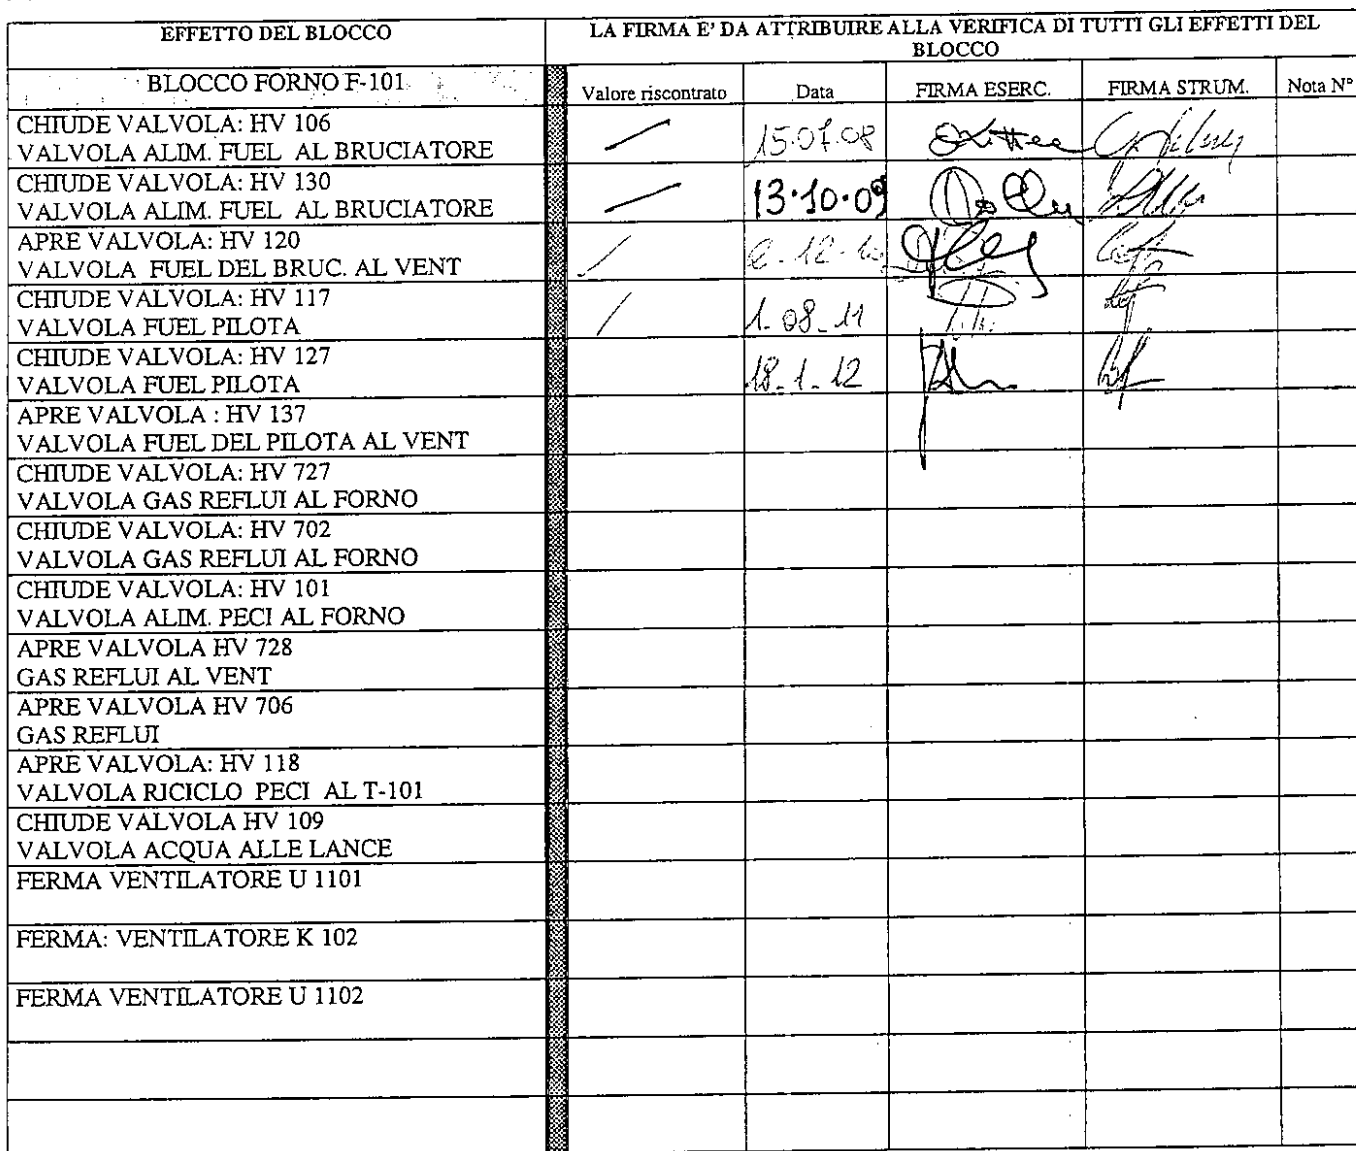 EFFETTO DEL BLOCCO
LA FIRMA E' DA ATTRIBUIRE ALLA VERIFICA DI TUTTI GLI EFFETTI DEL
BLOCCO
BLOCCO FORNO F-101
Valore riscontrato
Data
FIRMA ESERC.
FIRMA STRUM.
Nota N°
CHIUDE VALVOLA: HV 106
VALVOLA ALIM. FUEL AL BRUCIATORE
15.07.08
CHIUDE VALVOLA: HV 130
VALVOLA ALIM. FUEL AL BRUCIATORE
13.10.09
APRE VALVOLA: HV 120
VALVOLA FUEL DEL BRUC. AL VENT
CHIUDE VALVOLA: HV 117
VALVOLA FUEL PILOTA
1-08-11
CHIUDE VALVOLA: HV 127
VALVOLA FUEL PILOTA
18-1-12
APRE VALVOLA : HV 137
VALVOLA FUEL DEL PILOTA AL VENT
CHIUDE VALVOLA: HV 727
VALVOLA GAS REFLUI AL FORNO
CHIUDE VALVOLA: HV 702
VALVOLA GAS REFLUI AL FORNO
CHIUDE VALVOLA: HV 101
VALVOLA ALIM. PECI AL FORNO
APRE VALVOLA HV 728
GAS REFLUI AL VENT
APRE VALVOLA HV 706
GAS REFLUI
APRE VALVOLA: HV 118
VALVOLA RICICLO PECI AL T-101
CHIUDE VALVOLA HV 109
VALVOLA ACQUA ALLE LANCE
FERMA VENTILATORE U 1101
FERMA: VENTILATORE K 102
FERMA VENTILATORE U 1102